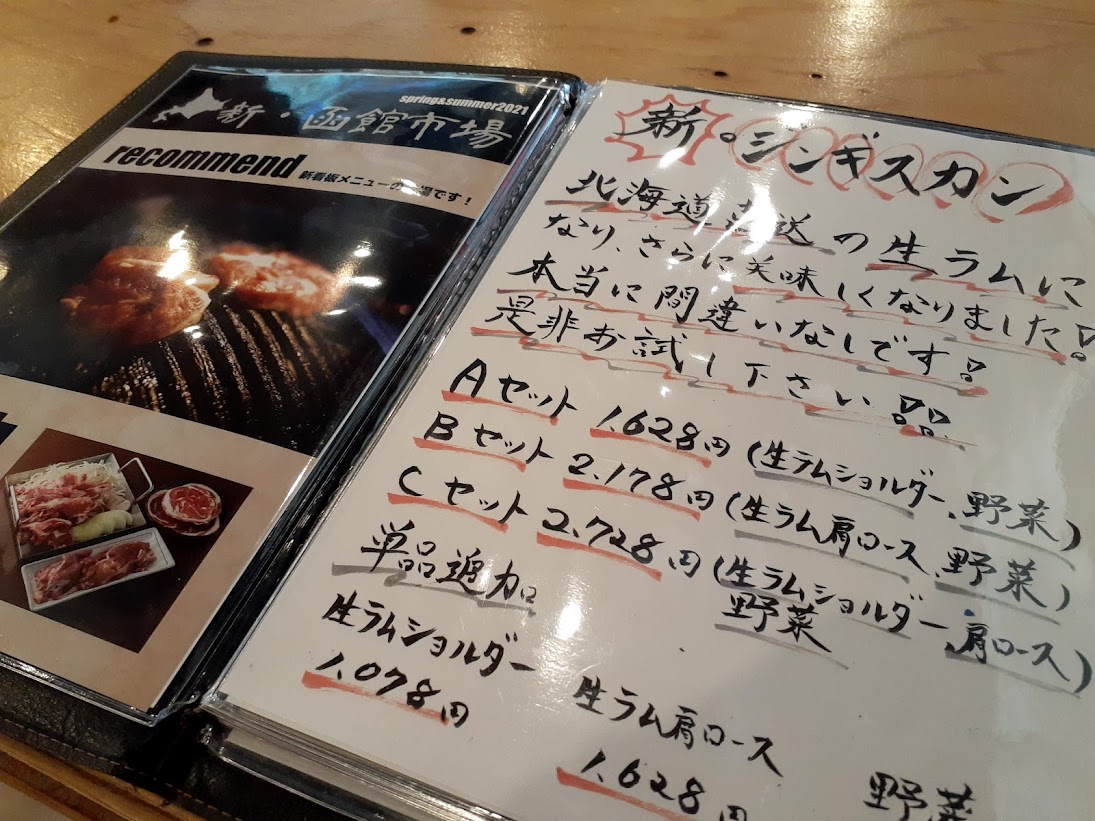 spring&summer2021
新・函館市場
recommend
新看板メニューの登場です!
新・ジンギスカン
北海道直送の生ラムに
なり、さらに美味しくなりました!
本当に間違いなしです!
是非お試し下さい!!
Aセット 1.628円(生ラムショルダー、野菜)
Bセット 2.178円(生ラム肩ロース、野菜)
Cセット 2.728円(生ラムショルダー、肩ロース)
野菜
単品追加
生ラムショルダー
1.078円
生ラム肩ロース
1.628円
野菜